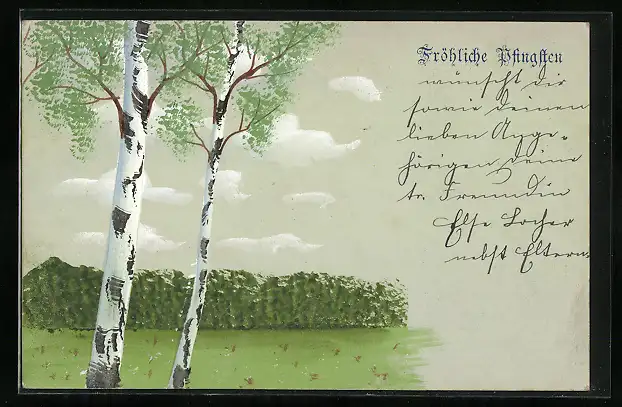 Fröhliche Pfingsten
wünscht dir
sowie deinen
lieben Ange-
hörigen, deine
tr. Freundin
Else Locher
nebst Eltern.